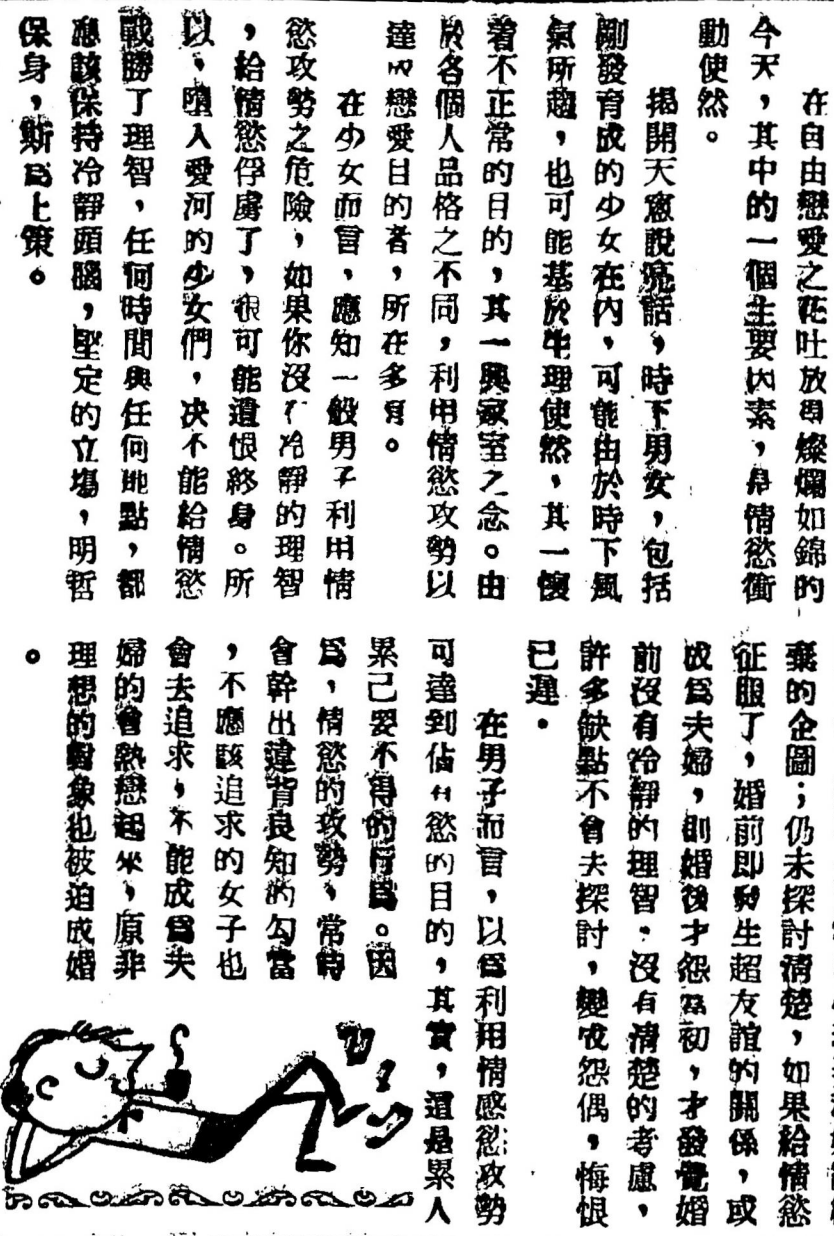 在自由戀愛之花吐放得燦爛如錦的
今天，其中的一個主要因素，是情慾衝
動使然。
揭開天窗說亮話，時下男女，包括
剛發育成的少女在內，可能由於時下風
氣所趨，也可能基於生理使然，其一懷
着不正常的目的，其一興家室之念。由
於各個人品格之不同，利用情慾攻勢以
達成戀愛目的者，所在多有。
在少女而言，應知一般男子利用情
慾攻勢之危險，如果你沒有冷靜的理智
，給情慾俘虜了，很可能遺恨終身。所
以，墮入愛河的少女們，决不能給情慾
戰勝了理智，任何時間與任何地點，都
應該保持冷靜頭腦，堅定的立塲，明哲
保身，斯爲上策。
棄的企圖；仍未探討清楚，如果給情慾
征服了，婚前即發生超友誼的關係，或
成爲夫婦，則婚後才怨當初，才發覺婚
前沒有冷靜的理智，沒有清楚的考慮，
許多缺點不會去探討，變成怨偶，悔恨
已遲。
在男子而言，以爲利用情感慾攻勢
可達到佔有慾的目的，其實，還是累人
累己要不得的行爲。因
爲，情慾的攻勢，常時
會幹出違背良知的勾當
，不應該追求的女子也
會去追求，不能成爲夫
婦的會熱戀起來，原非
理想的對象也被迫成婚
。